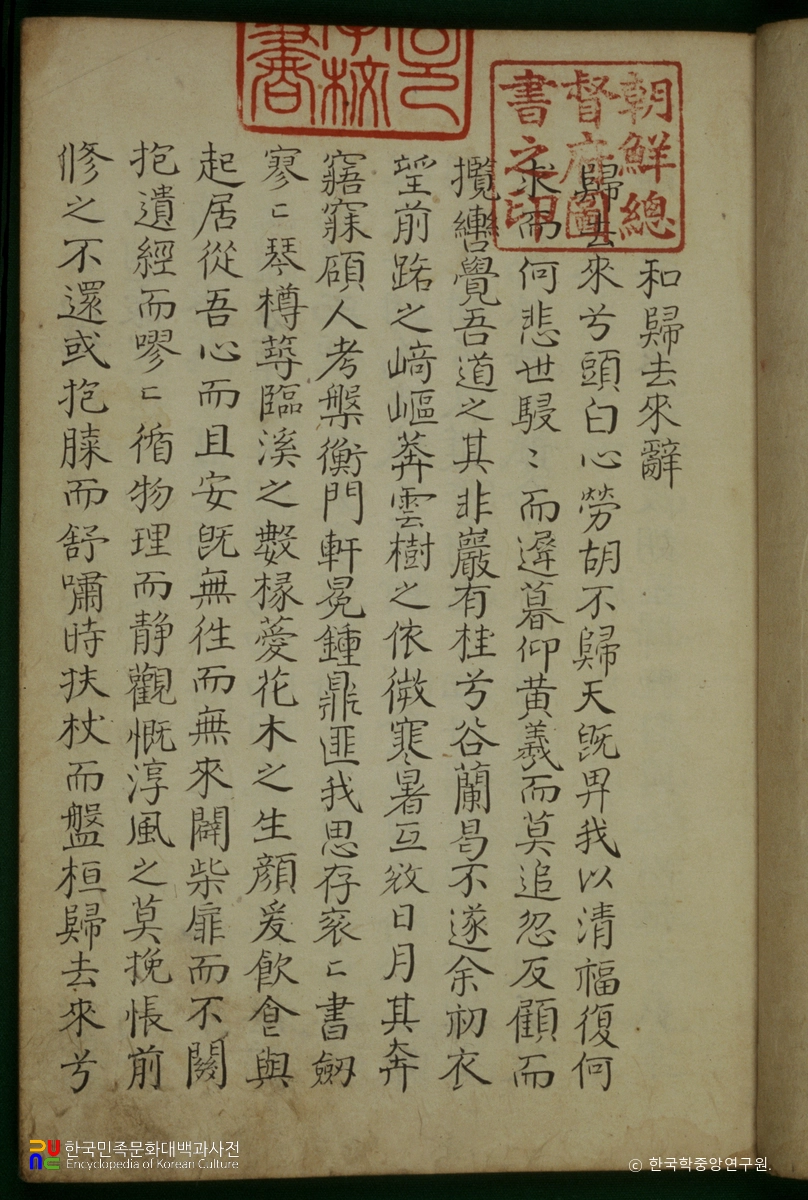 朝鮮總
督府圖
書之印
和歸去來辭
歸去來兮頭白心勞胡不歸天旣畀我以清福復何
求而何悲世駸〻而遲暮仰黃羲而莫追忽反顧而
攬轡覺吾道之其非巖有桂兮谷蘭曷不遂余初衣
望前路之崎嶇莽雲樹之依微寒暑互欻日月其奔
寤寐碩人考槃衡門軒冕鍾鼎匪我思存衮〻書劒
寥〻琴樽蓴臨溪之數椽薆花木之生顔爰飮食與
起居從吾心而且安旣無徃而無來闢柴扉而不闋
抱遺經而嘐〻循物理而静觀慨淳風之莫挽悵前
修之不還或抱膝而舒嘯時扶杖而盤桓歸去來兮
한국민족문화대백과사전
Encyclopedia of Korean Culture
© 한국학중앙연구원.